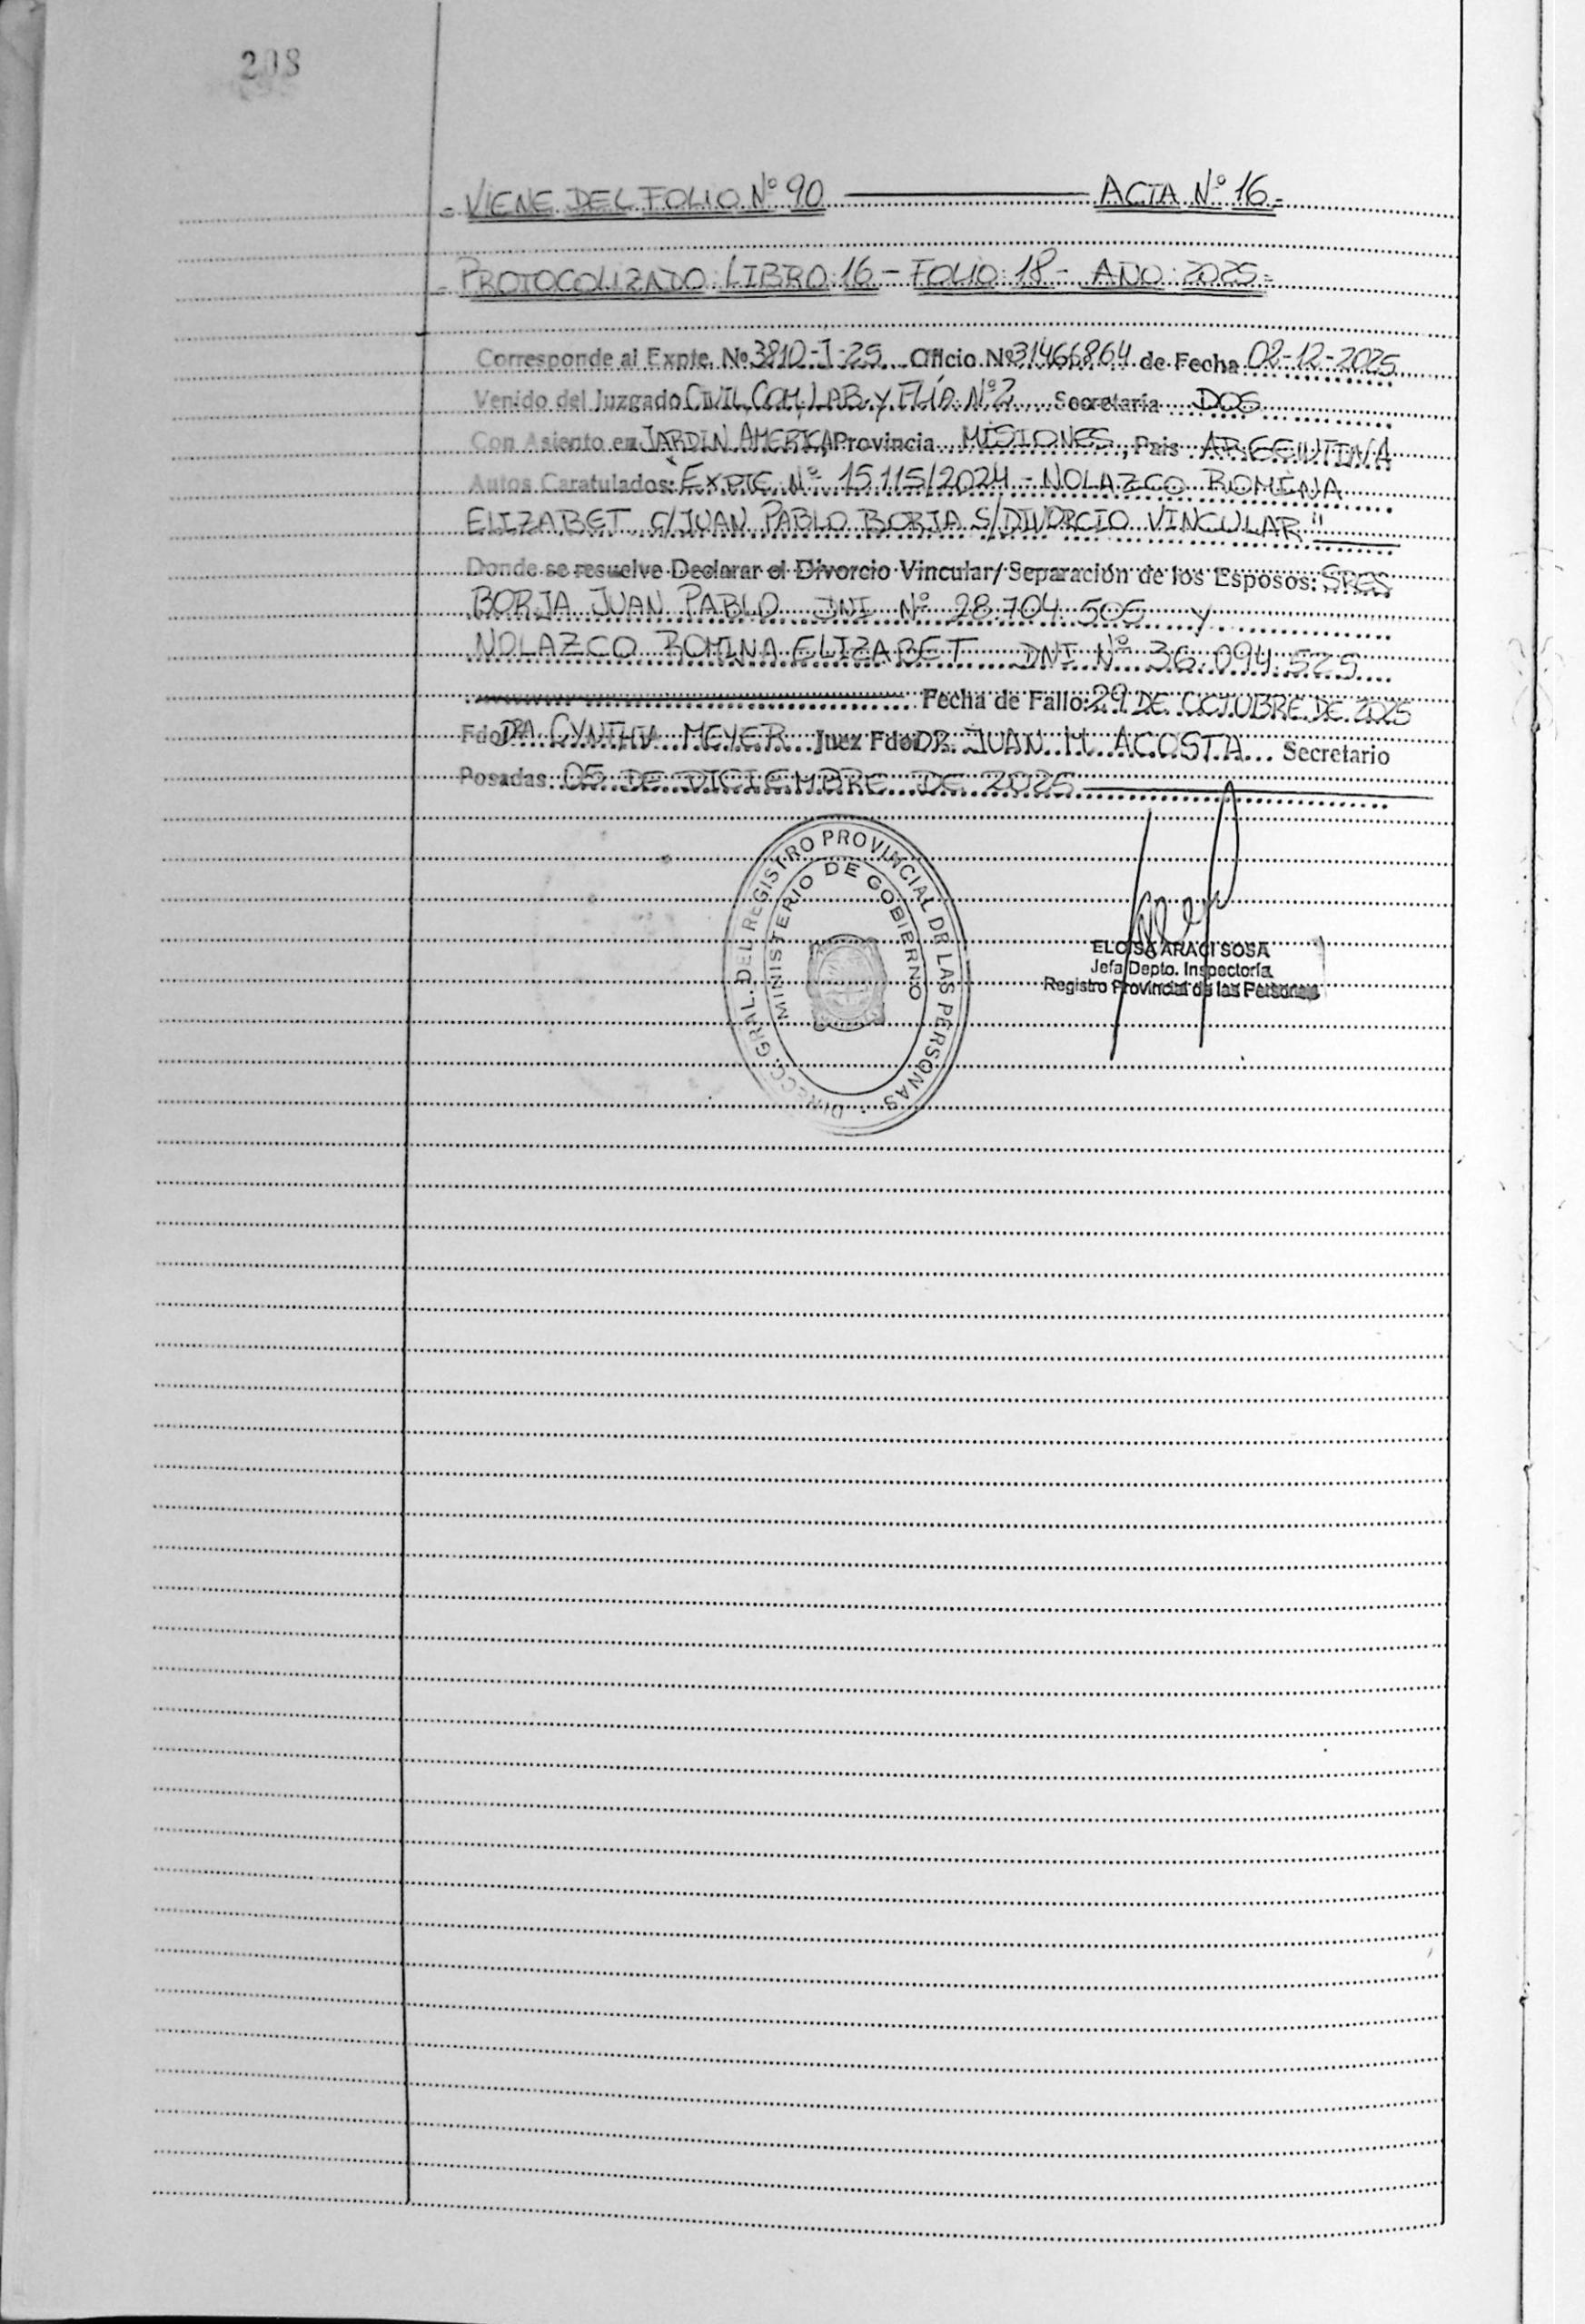 208
= VIENE DEL FOLIO Nº 90 ACTA Nº 16 =
= PROTOCOLIZADO: LIBRO: 16 - FOLIO: 18 - AÑO: 2025 =
Corresponde al Expte. Nº 3810-I-25 Oficio Nº 31466864 de Fecha 02-12-2025
Venido del Juzgado CIVIL COM, LAB. Y FLÍA. Nº 2 Secretaría DOS
Con Asiento en JARDIN AMERICA, Provincia MISIONES, País ARGENTINA
Autos Caratulados: EXPTE. Nº 15115/2024 - NOLAZCO ROMINA
ELIZABET C/ JUAN PABLO BORJA S/ DIVORCIO VINCULAR"
Donde se resuelve Declarar el Divorcio Vincular/ Separación de los Esposos: SRES
BORJA JUAN PABLO DNI Nº 28.704.505 Y
NOLAZCO ROMINA ELIZABET DNI Nº 36.094.525
Fecha de Fallo: 29 DE OCTUBRE DE 2025
Fdo: DRA CYNTHIA MEYER Juez Fdo: DR. JUAN M. ACOSTA Secretario
Posadas 05 DE DICIEMBRE DE 2025
DIRECC. GRAL. DEL REGISTRO PROVINCIAL DE LAS PERSONAS
MINISTERIO DE GOBIERNO
ELOISA ARACI SOSA
Jefa Depto. Inspectoría
Registro Provincial de las Personas